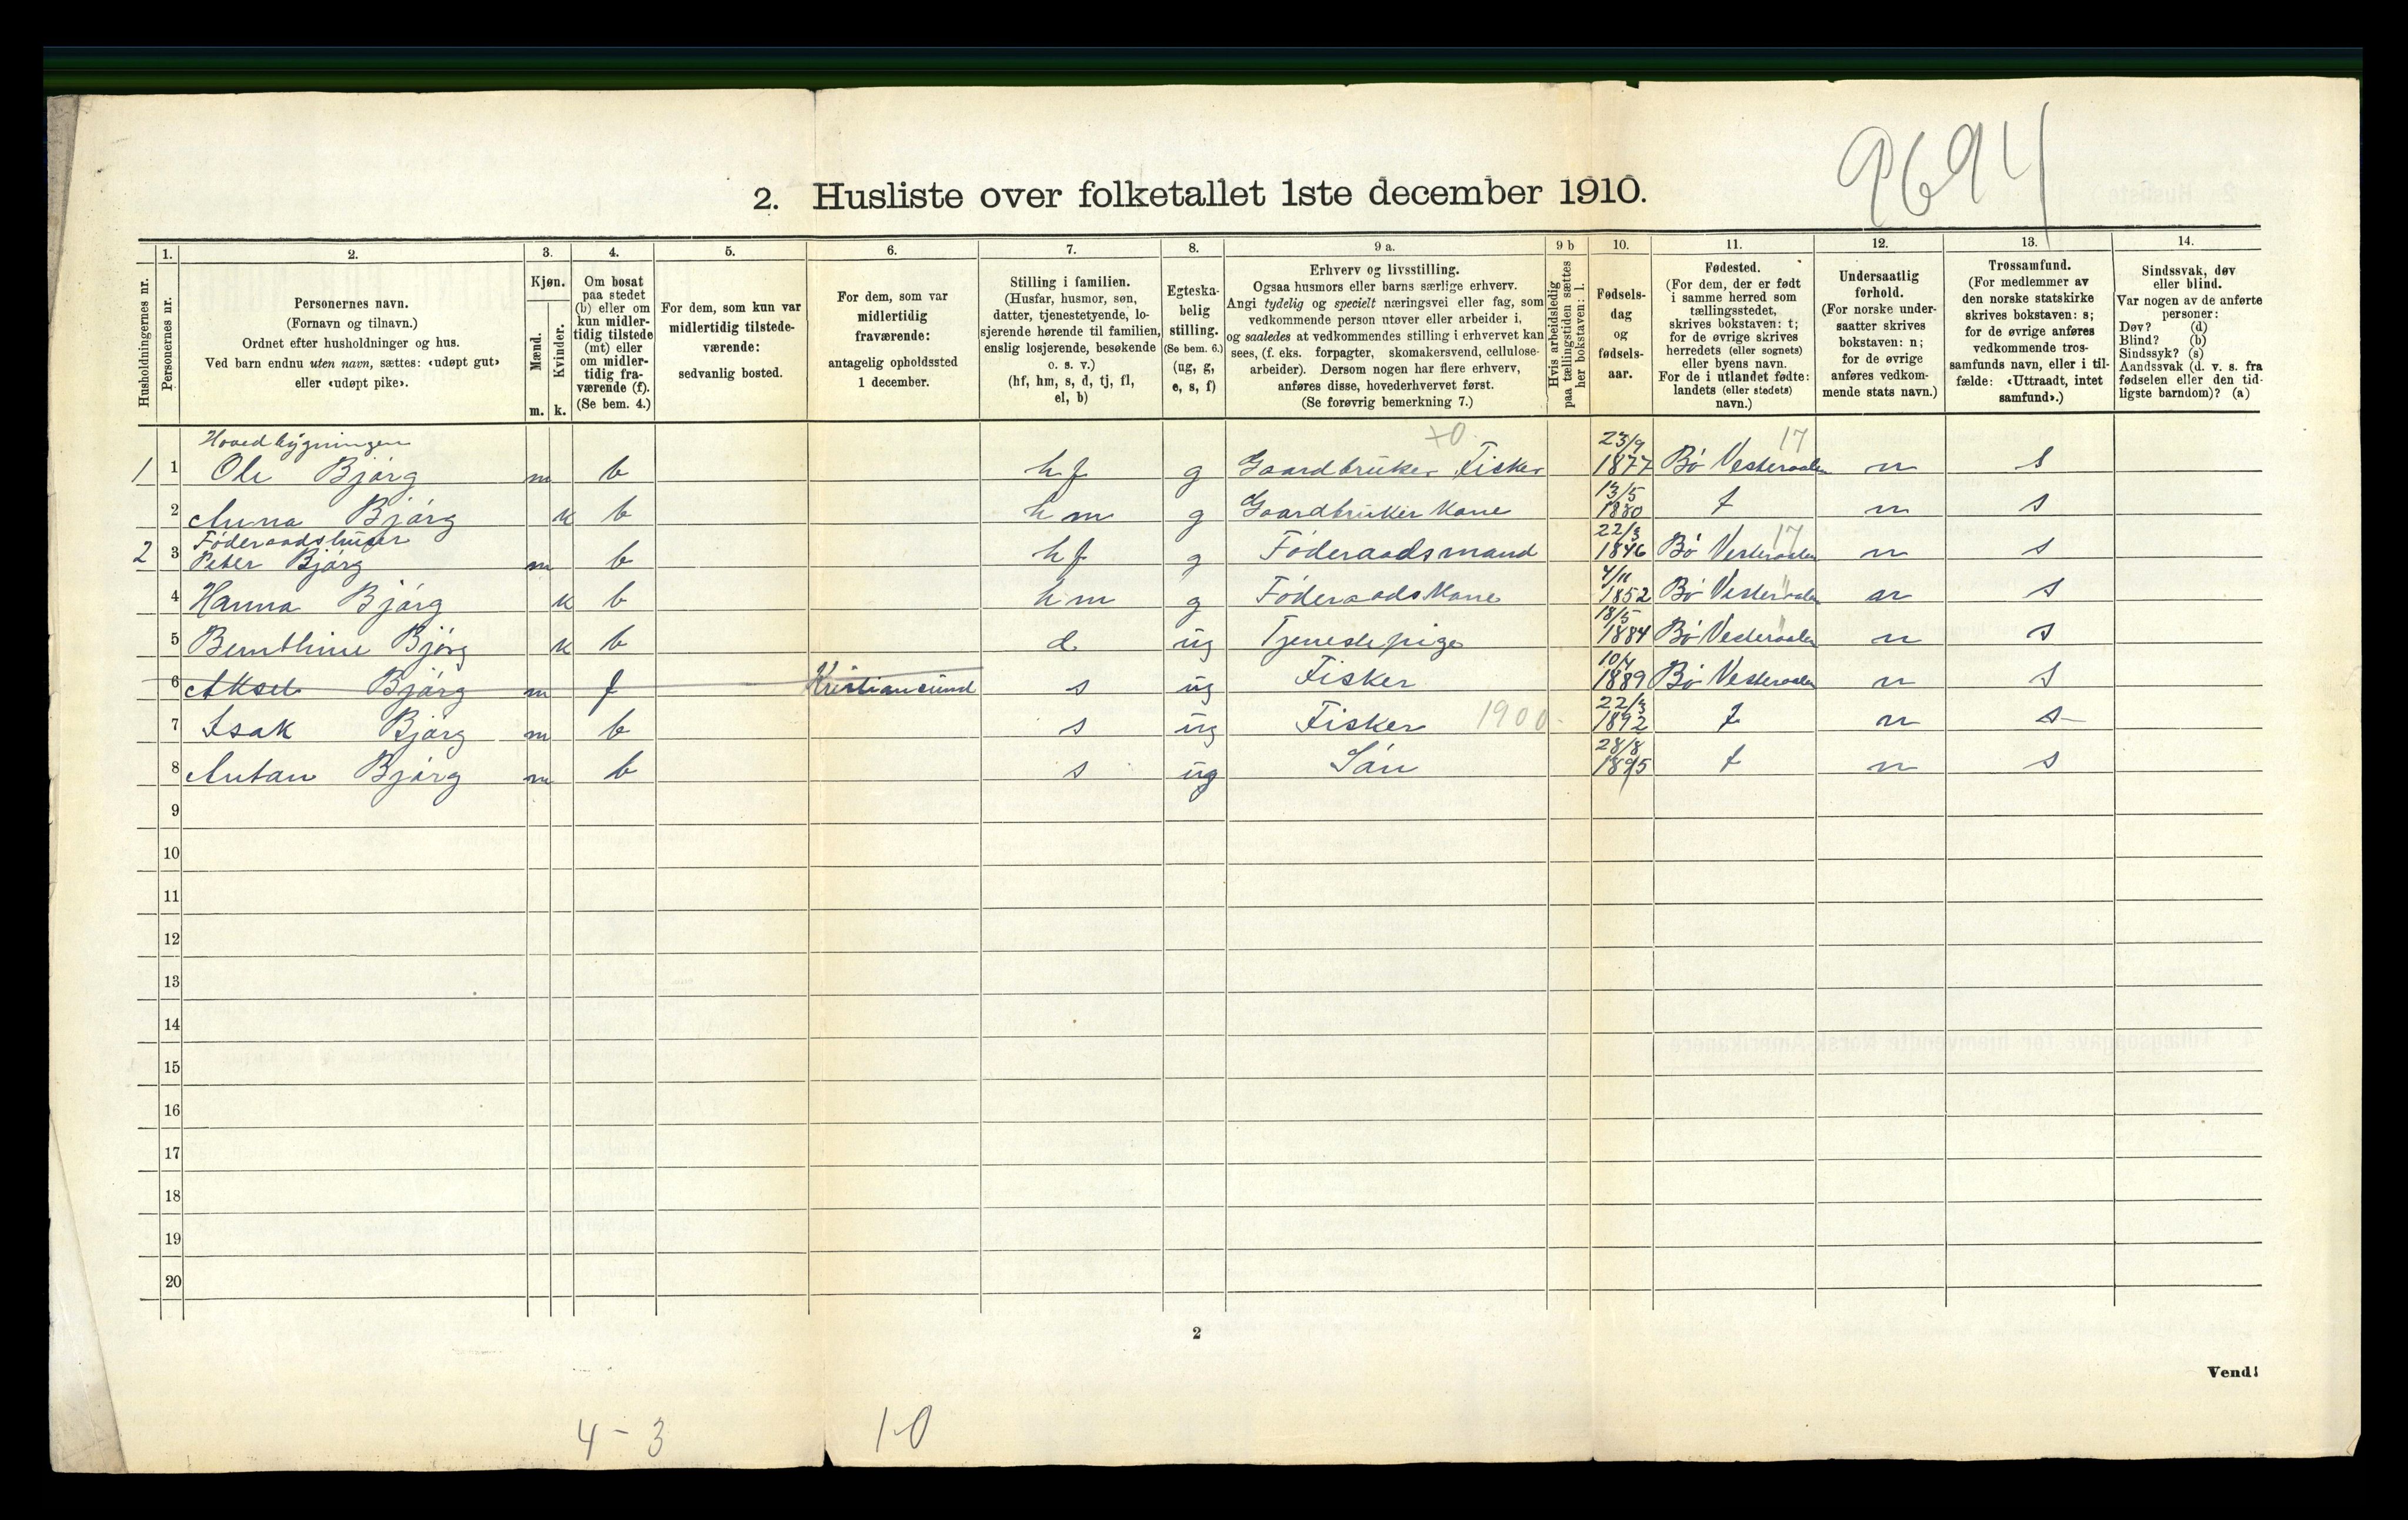 9694
2. Husliste over folketallet 1ste december 1910.
Husholdningernes nr.
1.
Personernes nr.
2.
Personernes navn.
(Fornavn og tilnavn.)
Ordnet efter husholdninger og hus.
Ved barn endnu uten navn, sættes: «udøpt gut»
eller «udøpt pike».
3.
Kjøn.
Mænd.
Kvinder.
m. k.
4.
Om bosat
paa stedet
(b) eller om
kun midler-
tidig tilstede
(mt) eller
om midler-
tidig fra-
værende (f).
(Se bem. 4.)
5.
For dem, som kun var
midlertidig tilstede-
værende:
sedvanlig bosted.
6.
For dem, som var
midlertidig
fraværende:
antagelig opholdssted
1 december.
7.
Stilling i familien.
(Husfar, husmor, søn,
datter, tjenestetyende, lo-
sjerende hørende til familien,
enslig losjerende, besøkende
o. s. v.)
(hf, hm, s, d, tj, fl,
el, b)
8.
Egteska-
belig
stilling.
(Se bem. 6.)
(ug, g,
e, s, f)
9 a.
Erhverv og livsstilling.
Ogsaa husmors eller barns særlige erhverv.
Angi tydelig og specielt næringsvei eller fag, som
vedkommende person utøver eller arbeider i,
og saaledes at vedkommendes stilling i erhvervet kan
sees, (f. eks. forpagter, skomakersvend, cellulose-
arbeider). Dersom nogen har flere erhverv,
anføres disse, hovederhvervet først.
(Se forøvrig bemerkning 7.)
9 b
Hvis arbeidsledig
paa tællingstiden sættes
her bokstaven: l.
10.
Fødsels-
dag
og
fødsels-
aar.
11.
Fødested.
(For dem, der er født
i samme herred som
tællingsstedet,
skrives bokstaven: t;
for de øvrige skrives
herredets (eller sognets)
eller byens navn.
For de i utlandet fødte:
landets (eller stedets)
navn.)
12.
Undersaatlig
forhold.
(For norske under-
saatter skrives
bokstaven: n;
for de øvrige
anføres vedkom-
mende stats navn.)
13.
Trossamfund.
(For medlemmer av
den norske statskirke
skrives bokstaven: s;
for de øvrige anføres
vedkommende tros-
samfunds navn, eller i til-
fælde: «Uttraadt, intet
samfund».)
14.
Sindssvak, døv
eller blind.
Var nogen av de anførte
personer:
Døv? (d)
Blind? (b)
Sindssyk? (s)
Aandssvak (d. v. s. fra
fødselen eller den tid-
ligste barndom)? (a)
Hovedbygningen
+0 23/9 17
1 1 Ole Bjørg m b hf g Gaardbruker Fisker 1877 Bø Vesteraalen n s
13/5
2 Anna Bjørg k b hm g Gaardbruker Kone 1880 t n s
Føderaadshuset 22/3 17
2 3 Peter Bjørg m b hf g Føderaadsmand 1846 Bø Vesteraalen n s
4/11 "
4 Hanna Bjørg k b hm g Føderaads Kone 1852 Bø Vesteraalen n s
18/5 "
5 Bernthine Bjørg k b d ug Tjenestepige 1884 Bø Vesteraalen n s
10/4
6 Aksel Bjørg m f Kristiansund s ug Fisker 1889 Bø Vesteraalen n s
22/3
7 Isak Bjørg m b s ug Fisker 1900 1892 t n s
28/8
8 Antan Bjørg m b s ug Søn 1895 t n s
9
10
11
12
13
14
15
16
17
18
19
20
2
Vend!
4 - 3 1-0